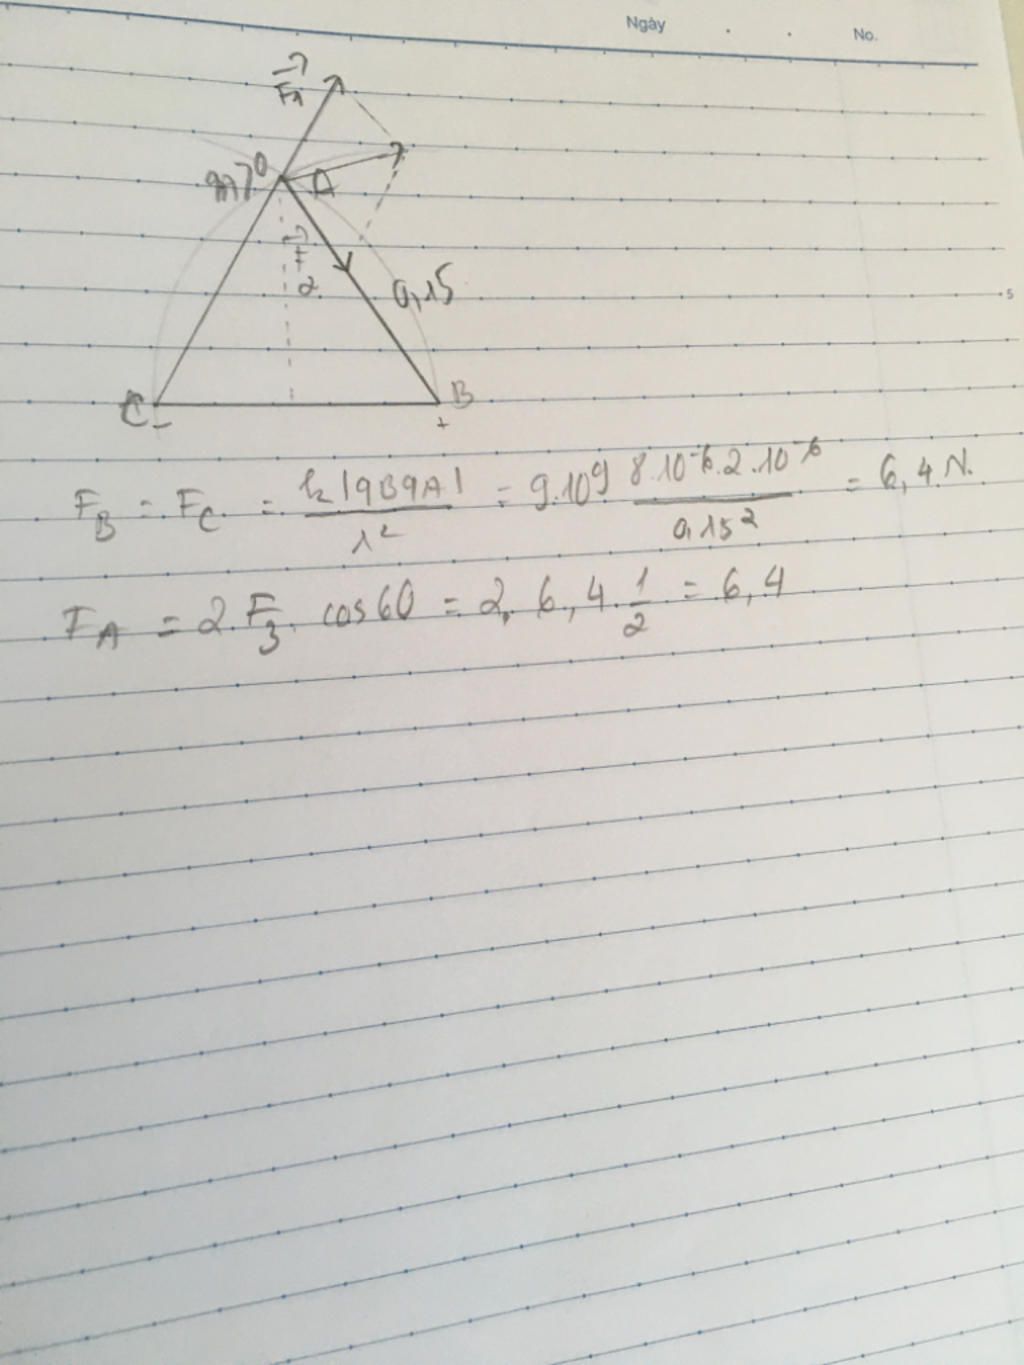 Ngày No.
F₁
q₁>0 A
F
2
0,15
5
C B
- +
F_B = F_C = k|qBqA| / r² = 9.10⁹ 8.10⁻⁶.2.10⁻⁶ / 0,15² = 6,4.N.
F_A = 2.F₃. cos60 = 2. 6,4. 1/2 = 6,4